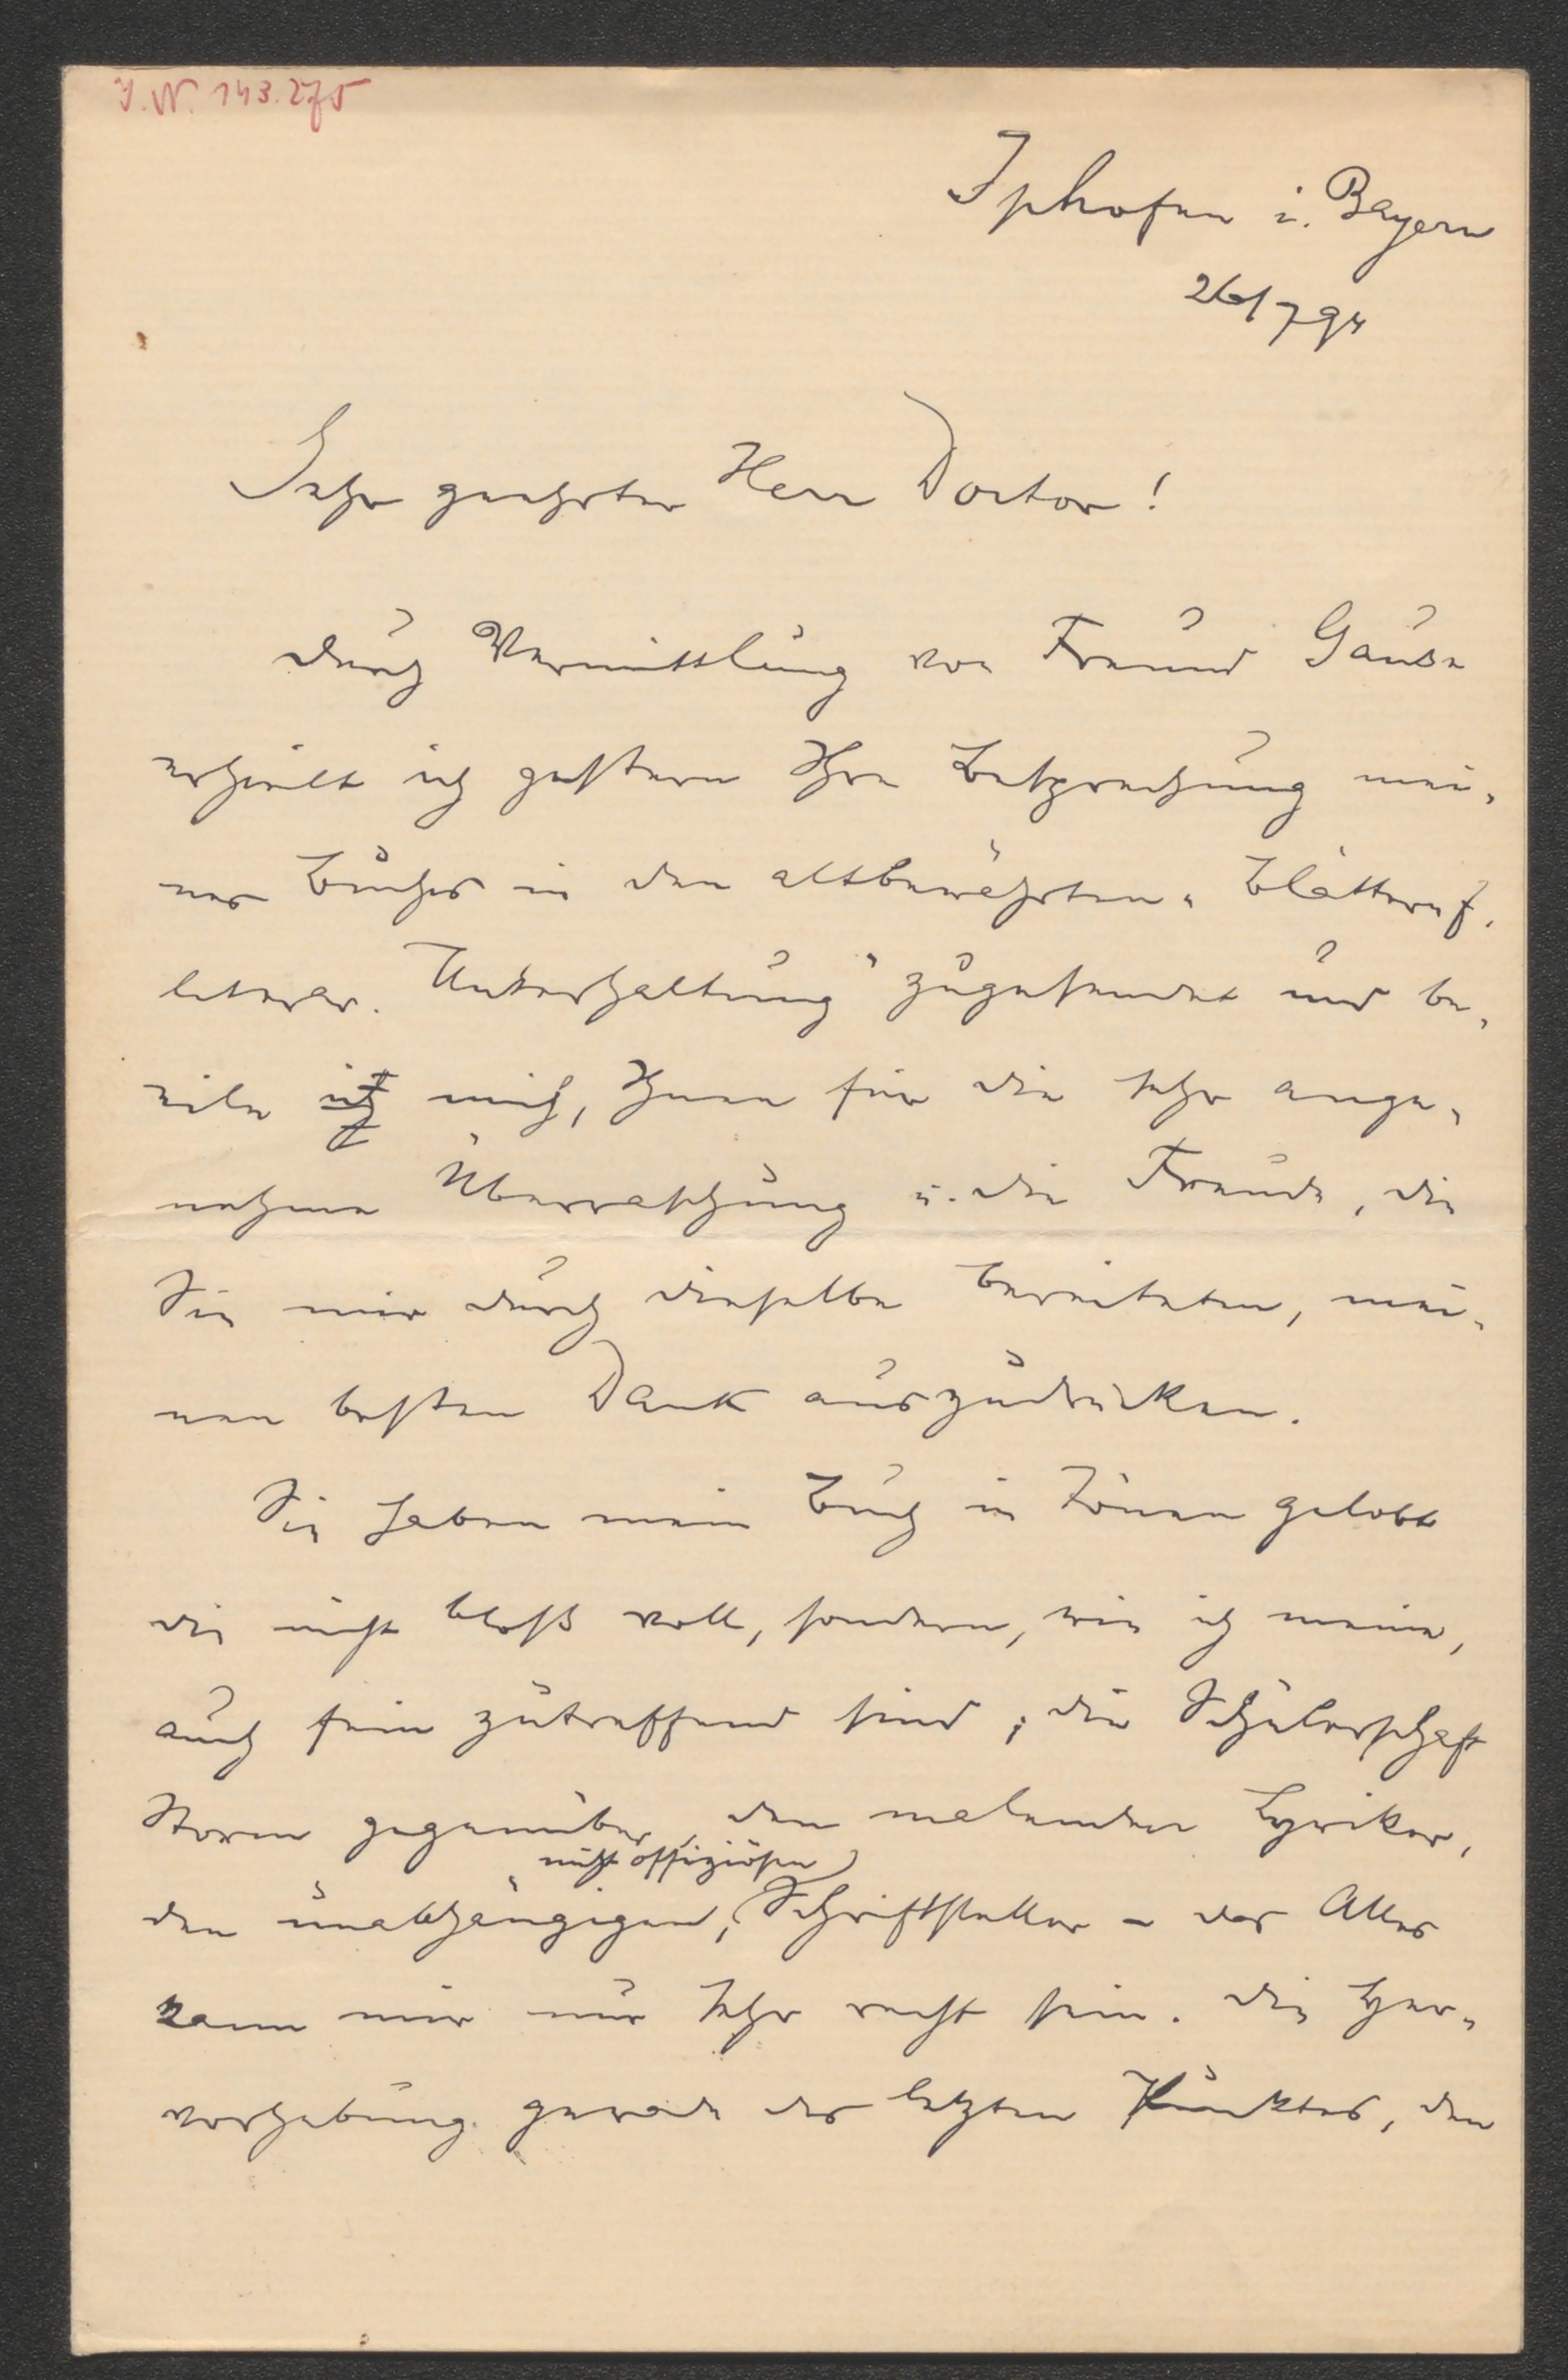 J.N. 143.275
Iphofen i. Bayern
26/7 94
Sehr geehrter Herr Doctor!
durch Vermittlung von Freund Gauss
erhielt ich gestern Ihre Besprechung mei-
nes Buches in den altbewährten „Blättern f.
literar. Unterhaltung" zugesendet und be-
eile ich mich, Ihnen für die sehr ange-
nehme Überraschung u. die Freude, die
Sie mir durch dieselbe bereiteten, mei-
nen besten Dank auszudrücken.
Sie haben mein Buch in Tönen gelobt
die nicht bloß voll, sondern, wie ich meine,
auch fein zutreffend sind; die Schülerschaft
Storm gegenüber, den malenden Lyriker,
nicht offiziösen
den unabhängigen, Schriftsteller – das Alles
kann mir nur sehr recht sein. Die Her-
vorhebung gerade des letzten Punktes, den